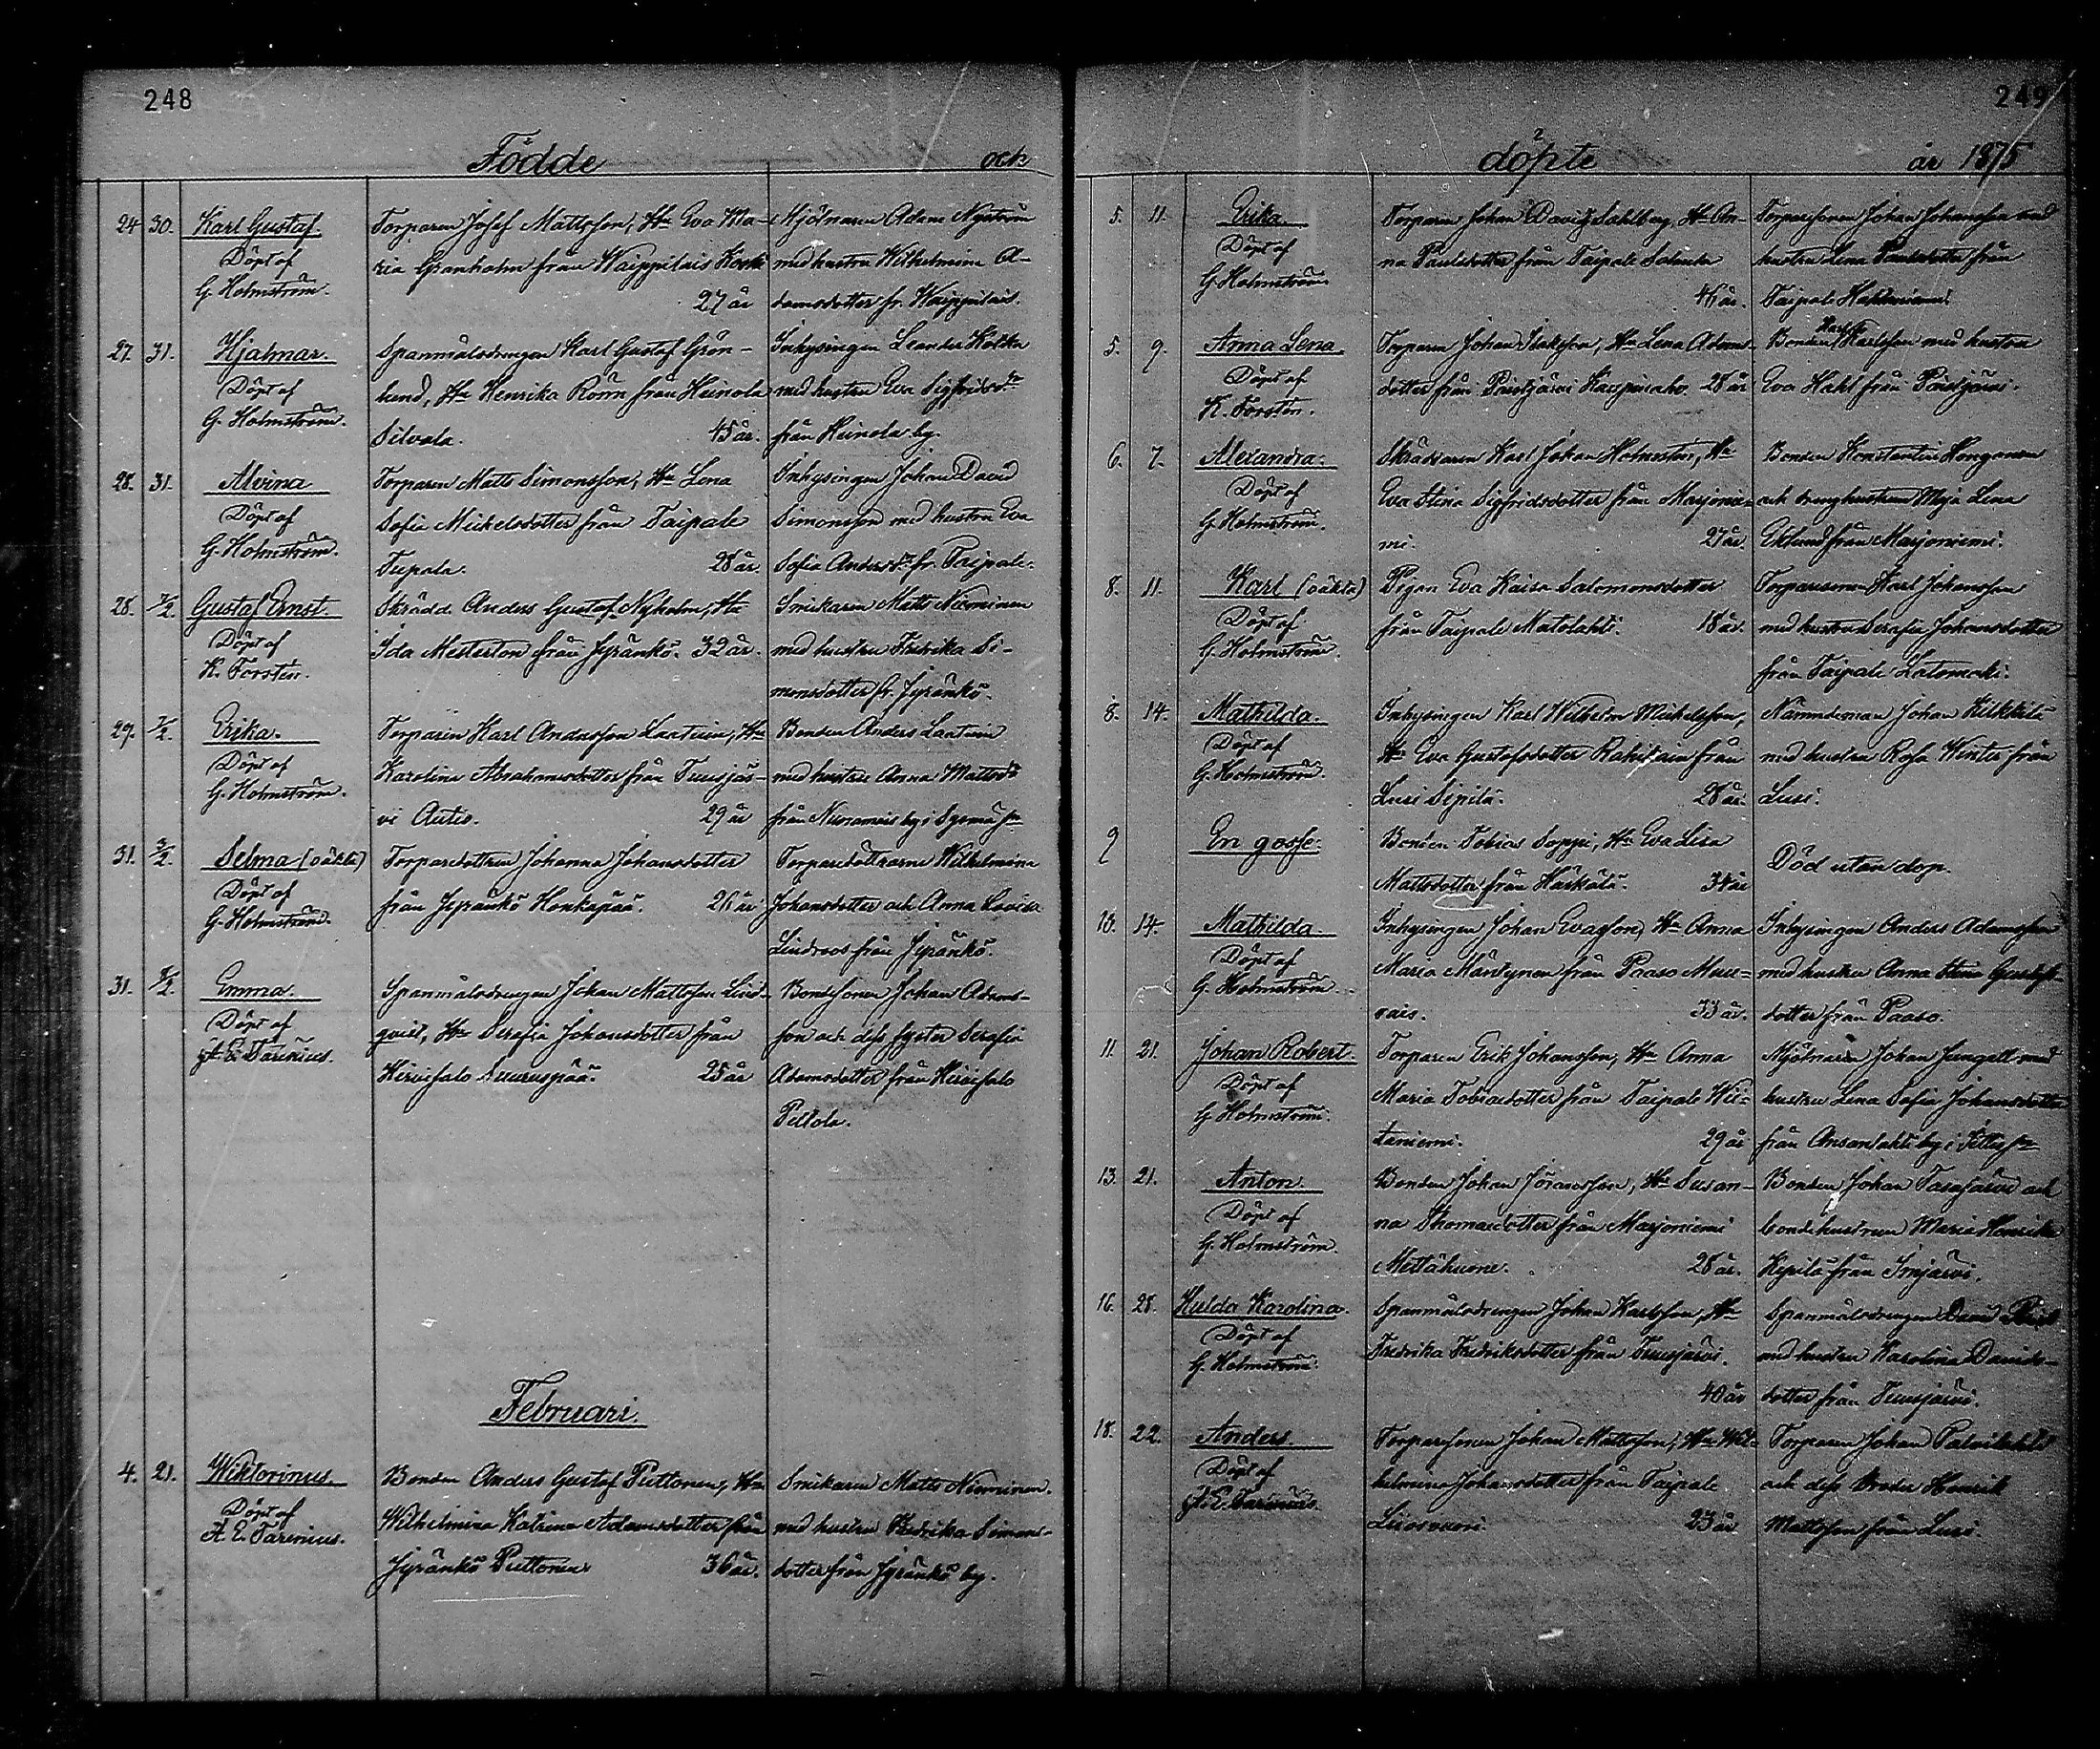 248
Födde
och
24 30. Karl Gustaf.
Döpt af
G. Holmström.
Torparen Josef Mattsson, Hu Eva Ma-
ria Granholm från Waippilais Koski
27 år
Mjölnaren Adam Nyström
med hustru Wilhelmina A-
damsdotter fr. Waippilais.
27. 31. Hjalmar.
Döpt af
G. Holmström.
Spanmålsdrengen Karl Gustaf Grön-
lund, Hu Henrika Röörn från Heinola
Silvola. 45 år.
Inhysingen Leander
med hustru Eva Sigfridsdr
från Heinola by.
28. 31. Alvina
Döpt af
G. Holmström.
Torparen Matts Simonsson, Hu Lena
Sofia Mickelsdotter från Taipale
Tupala. 28 år.
Inhysingen Johan David
Simonsson med hustru Eva
Sofia Andersdr fr. Taipale.
28. 7/2. Gustaf Ernst.
Döpt af
K. Forstén.
Skrädd. Anders Gustaf Nyholm, Hu
Ida Mesterton från Jyränkö. 32 år.
Snickaren Matts Nieminen
med hustru Fredrika Si-
monsdotter fr. Jyränkö.
29. 7/2. Erika.
Döpt af
G. Holmström.
Torparen Karl Andersson Laatuin, Hu
Karolina Abrahamsdotter från Tuusjär-
vi Autio. 29 år
Bonden Anders Laatuin
med hustru Anna Mattsdr
från by i Sysmä sn
31. 3/2. Selma (oäkta)
Döpt af
G. Holmström.
Torparedottren Johanna Johansdotter
från Jyränkö Honkapää. 26 år
Torparedöttrarne Wilhelmina
Johansdotter och Anna Lovisa
Lindroos från Jyränkö.
31. 8/2. Emma.
Döpt af
A. E. Tarenius.
Spanmålsdrengen Johan Mattsson Lind-
qvist, Hu Serafia Johansdotter från
Hirvisalo Suuruspää. 25 år
Bondesonen Johan Adams-
son och dess syster Serafia
Adamsdotter från Hirvisalo
Peltola.
Februari.
4. 21. Wiktorinus.
Döpt af
A. E. Tarenius.
Bonden Anders Gustaf Puttonen, Hu
Wilhelmina Katrina Adamsdotter från
Jyränkö Puttonen 36 år.
Snickaren Matts Nieminen.
med hustru Fredrika Simons-
dotter från Jyränkö by.
249
2
döpte
år 1875
5. 11. Erika
Döpt af
G. Holmström.
Torparen Johan David Sahlberg, Hu An-
na Paulsdotter från Taipale
46 år.
Torparesonen Johan Johansson med
hustru Lena Paulsdotter från
Taipale
5. 9. Anna Lena.
Döpt af
K. Forstén.
Torparen Johan Isaksson, Hu Lena Adams-
dotter från Paistjärvi 28 år
Bonden Karlsson med hustru
Eva Hahl från Paistjärvi.
6. 7. Alexandra.
Döpt af
G. Holmström.
Skräddaren Karl Johan Holmstén, Hu
Eva Stina Sigfridsdotter från Marjonie-
mi. 27 år.
Bonden Konstantin Honganen
och drenghustrun Maja Lena
Eklund från Marjoniemi.
8. 11. Karl (oäkta)
Döpt af
G. Holmström
Pigan Eva Kaisa Salomonsdotter
från Taipale Matolahti. 18 år.
Torparesonen Karl Johansson
med hustru Serafia Johansdotter
från Taipale Latomäki.
8. 14. Mathilda.
Döpt af
G. Holmström.
Inhysingen Karl Wilhelm Mickelsson,
Hu Eva Gustafsdotter från
Lusi Sipilä. 28 år.
Nämndeman Johan
med hustru Rosa Winter från
Lusi.
9 En gosse.
Bonden Tobias Soppi, Hu Eva Lisa
Mattsdotter från Härkälä. 34 år
Död utan dop.
10. 14. Mathilda.
Döpt af
G. Holmström.
Inhysingen Johan Evasson, Hu Anna
Maria Mäntynen från Paaso
33 år.
Inhysingen Anders Adamsson
med hustru Anna Stina Gustafs-
dotter från Paaso.
11. 21. Johan Robert
Döpt af
G. Holmström.
Torparen Erik Johansson, Hu Anna
Maria Tobiasdotter från Taipale Wii-
taniemi. 29 år
Mjölnaren Johan Jungell med
hustru Lena Sofia Johansdotter
från Ansanlahti by i Jittis sn
13. 21. Anton.
Döpt af
G. Holmström.
Bonden Johan Göransson, Hu Susan-
na Thomasdotter från Marjoniemi
Mettähuone. 28 år.
Bonden Johan och
bondehustrun Maria Henrika
från Imjärvi.
16. 28. Hulda Karolina.
Döpt af
G. Holmström.
Spanmålsdrengen Johan Karlsson, Hu
Fredrika Fredriksdotter från Tuusjärvi.
40 år
Spanmålsdrengen David
med hustru Karolina Davids-
dotter från Tuusjärvi.
18. 22. Anders.
Döpt af
A. E. Tarenius.
Torparesonen Johan Mattsson, Hu Wil-
helmina Johansdotter från Taipale
23 år
Torparen Johan
och dess broder Henrik
Mattsson från Lusi.